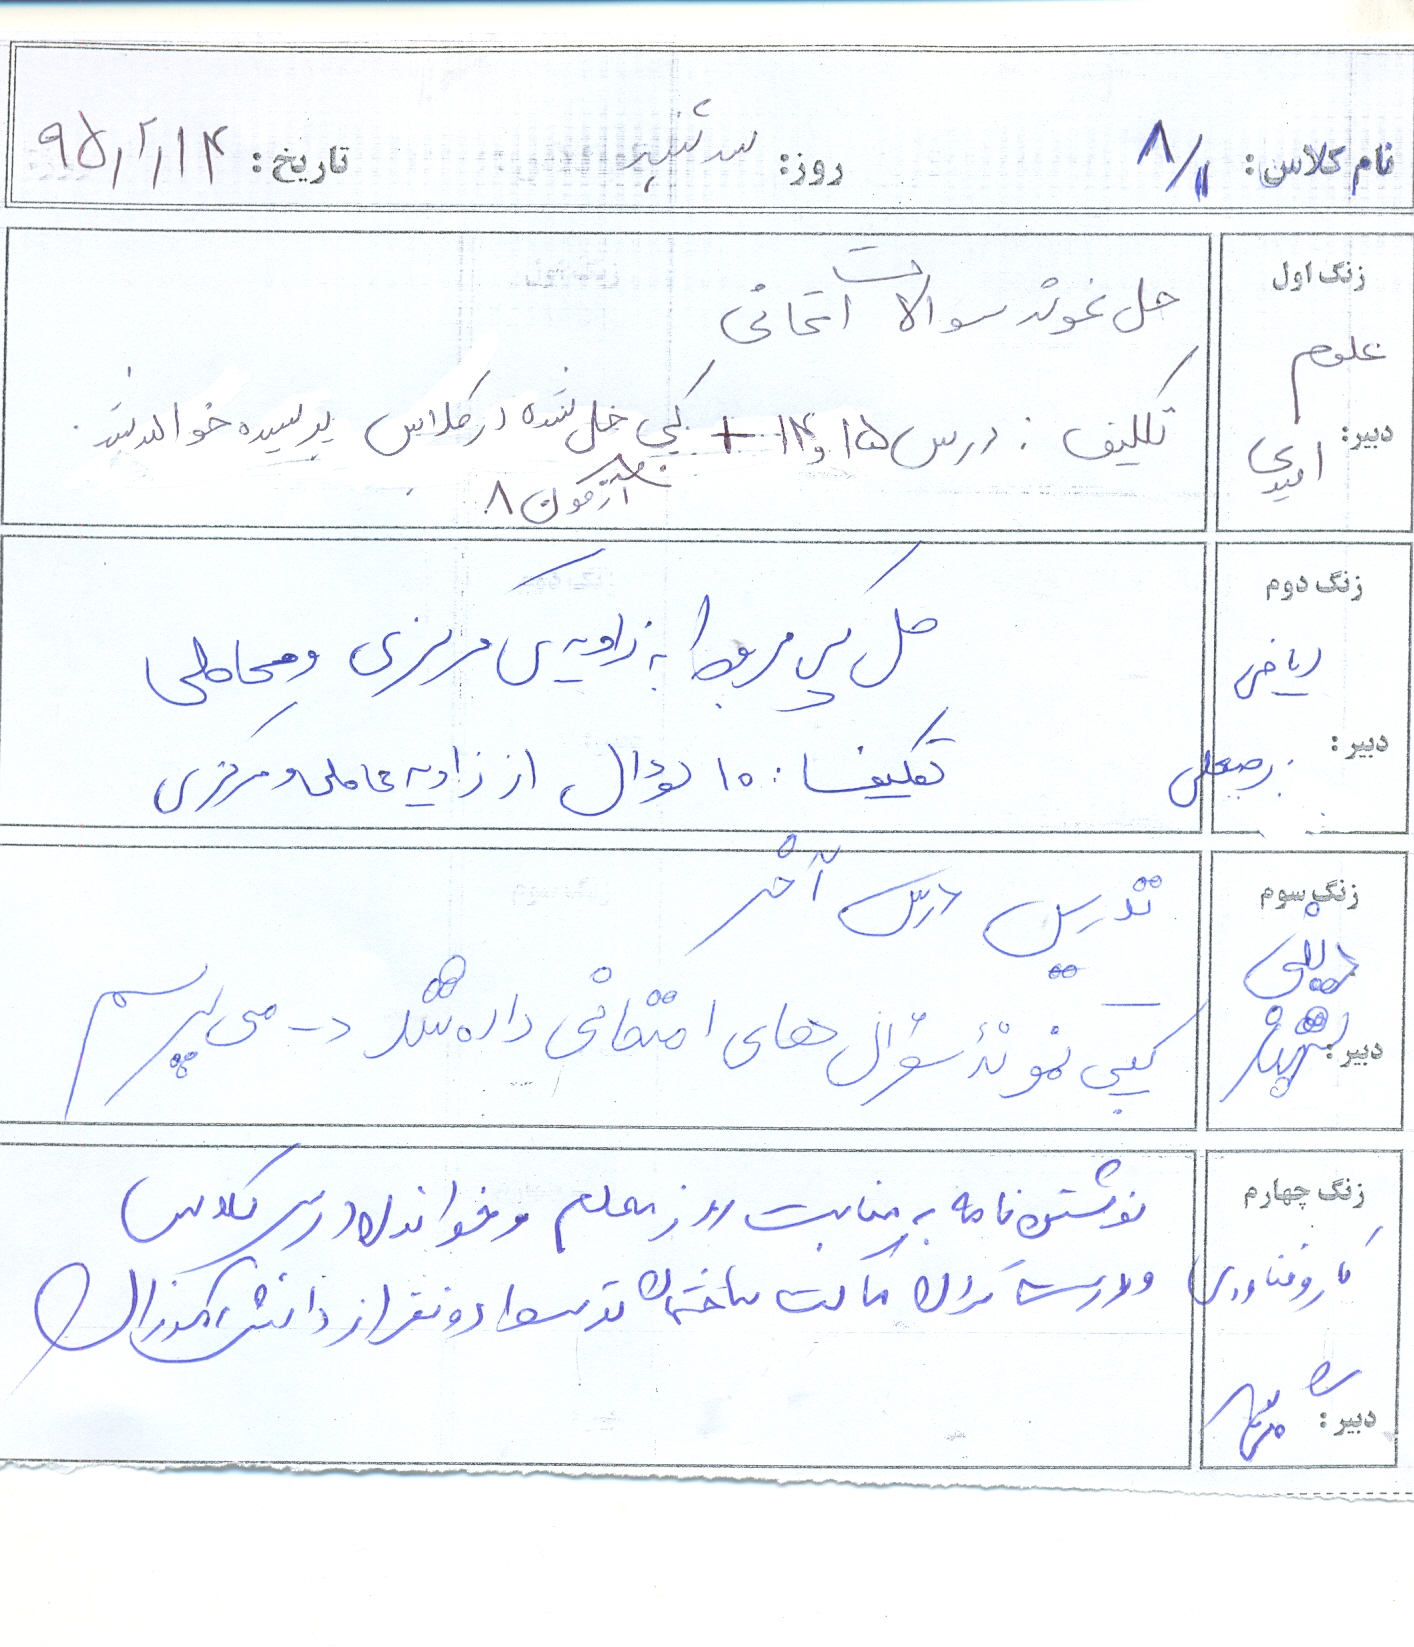 نام کلاس: ۸/۱۱ روز: سه شنبه تاریخ: ۹۵/۲/۱۴
زنگ اول
علوم
دبیر: امیدی
حل نمونه سوالات امتحانی
تکلیف: درس ۱۵ و ۱۴ + کپی حل شده در کلاس پرسیده خواهد شد.
آزمون ۸
زنگ دوم
ریاضی
دبیر: رجبعلی
حل کپی مربوط به زاویه ی مرکزی و محاطی
تکلیف: ۱۰ سوال از زاویه محاطی و مرکزی
زنگ سوم
دینی
دبیر:
تدریس درس آخر
کپی نمونۀ سؤال های امتحانی داده شد - می پرسم
زنگ چهارم
کار و فناوری
دبیر:
نوشتن نامه به مناسبت روز معلم و خواندن در سر کلاس
و درست کردن ماکت ساختمان توسط دو نفر از دانش آموزان